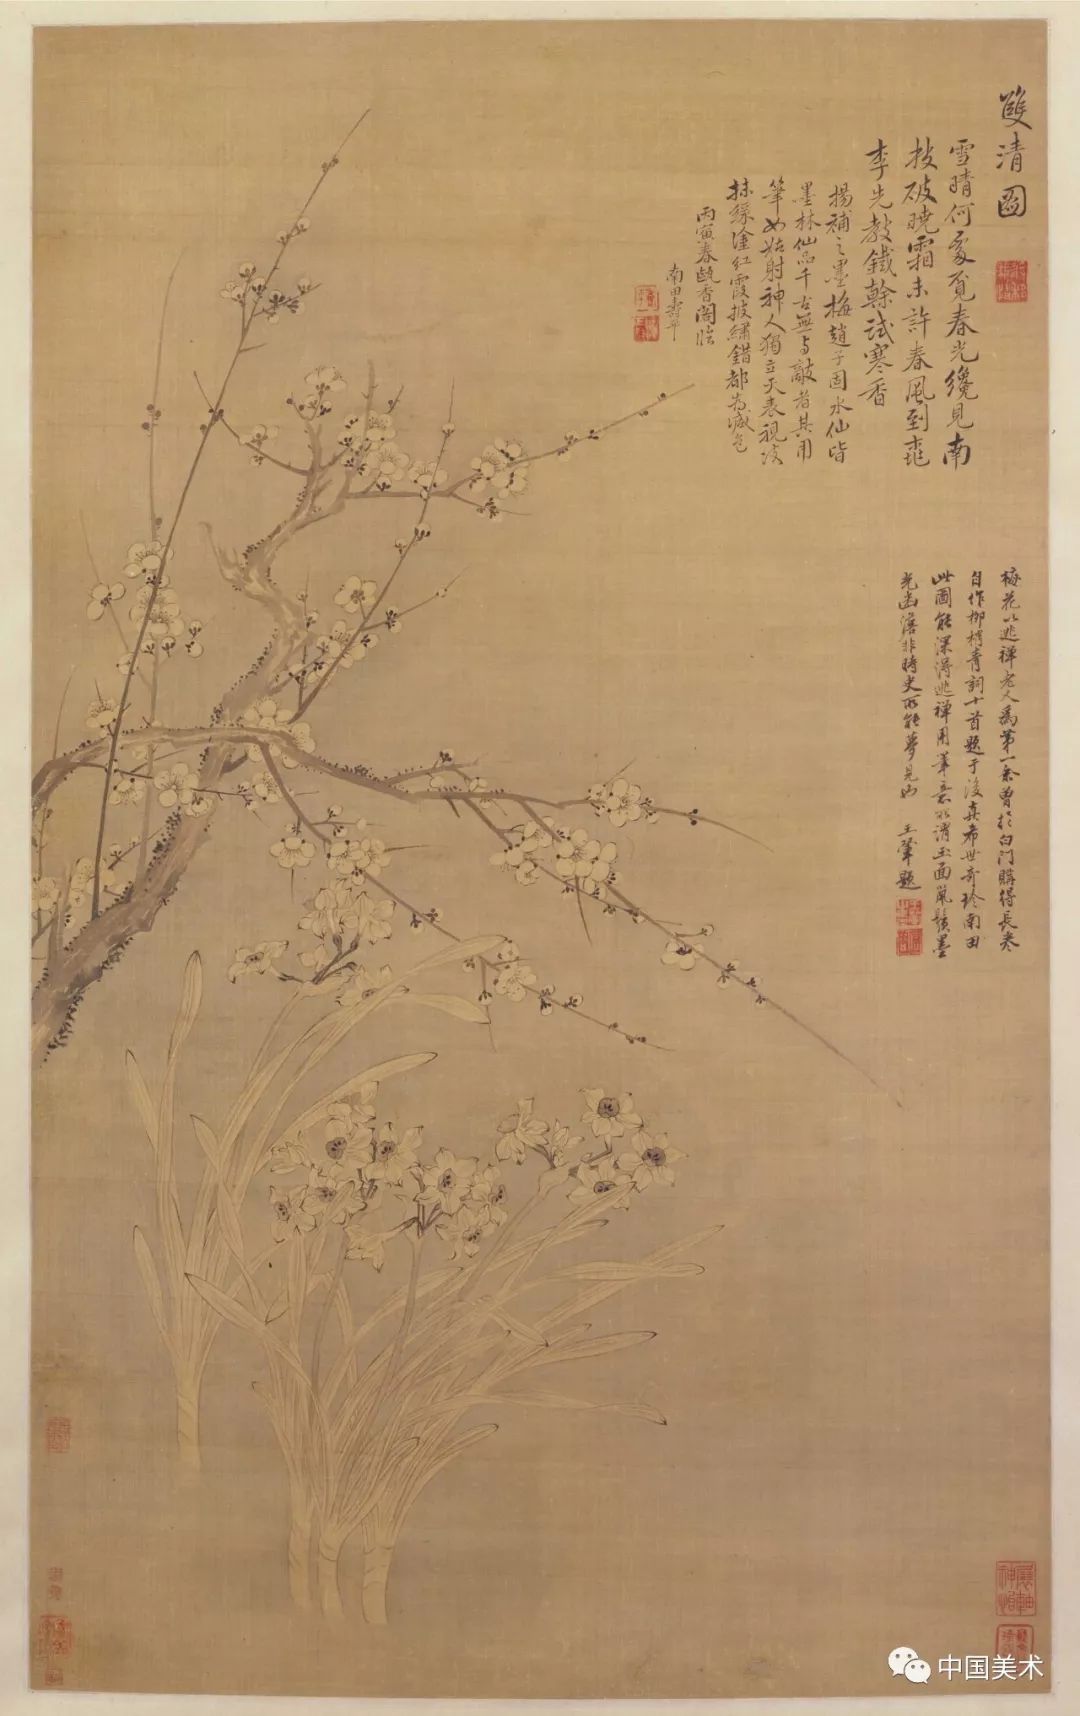 雙清圖
雪晴何處覓春光纔見南
枝破曉霜未許春風到桃
李先教鐵榦試寒香
揚補之墨梅趙子固水仙皆
墨林仙品千古無與敵者其用
筆如姑射神人獨立天表視凌
抹綠塗紅霞披繡錯都為減色
丙寅春甌香閣臨
南田壽平
梅花以逃禪老人為第一余曾於白門購得長卷
自作柳梢青詞十首題于後真希世奇珍南田
此圖能深得逃禪用筆意所謂玉面鼠鬚墨
光幽澹非時史所能夢見也
王翬題
展軸神怡
中国美术